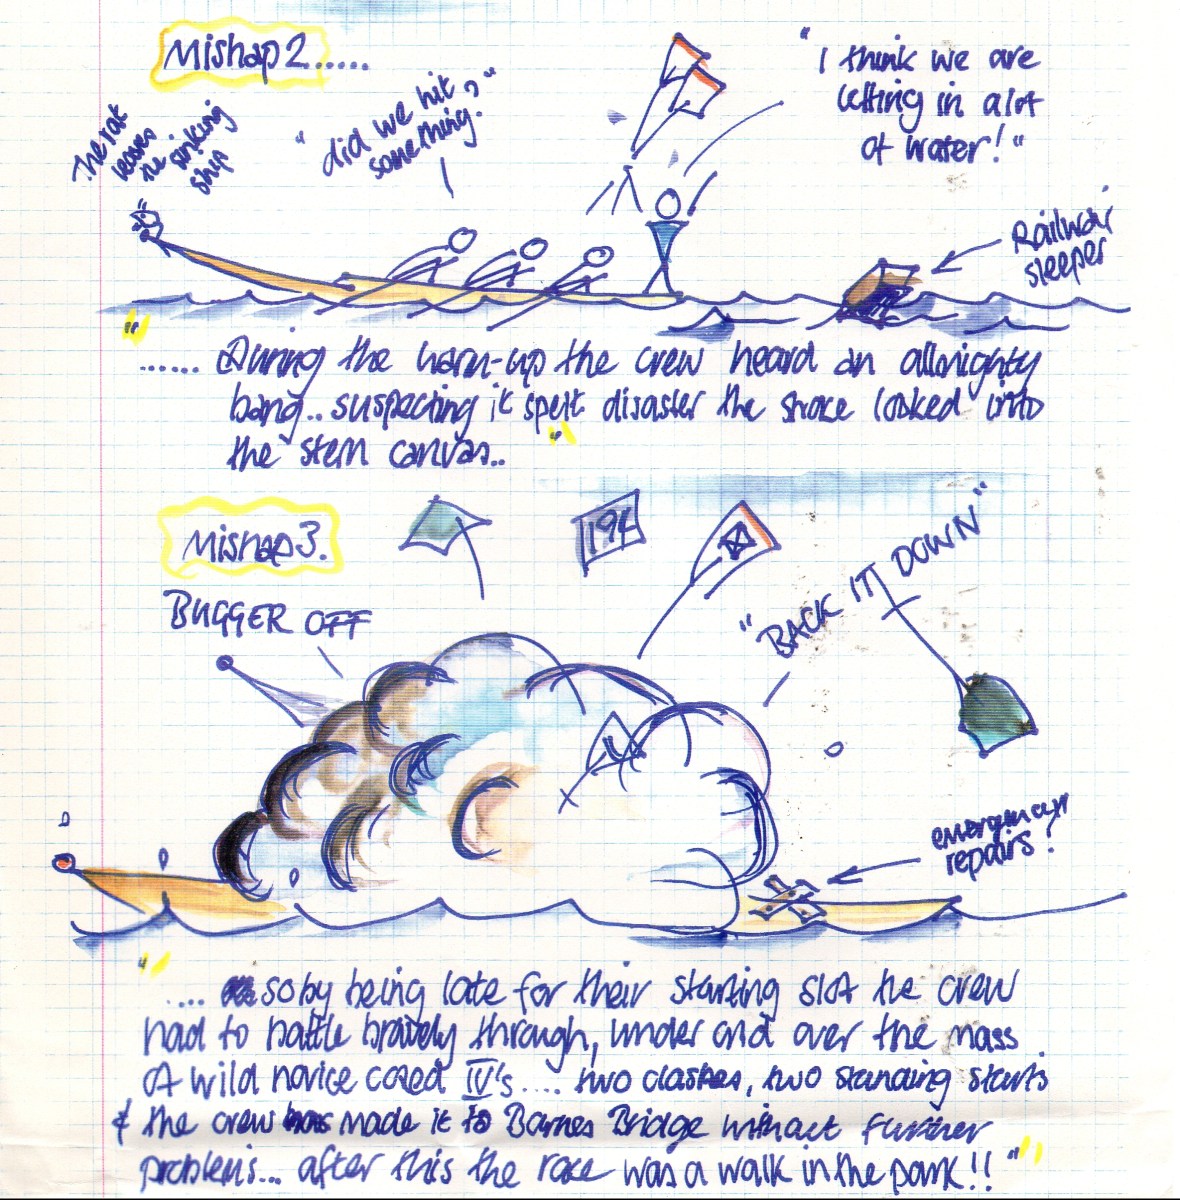 Mishap 2......
The rat
leaves
the sinking
ship
"did we hit
something?"
"I think we are
letting in a lot
of water!"
Railway
sleeper
"...... During the warm-up the crew heard an allmighty
bang.. suspecting it spelt disaster the stroke looked into
the stern canvas.."
Mishap 3.
BUGGER OFF
194
"BACK IT DOWN"
emergency
repairs!
".... so by being late for their starting slot the crew
had to battle bravely through, under and over the mass
of wild novice coxed IV's .... two clashes, two standing starts
& the crew made it to Barnes Bridge without further
problems... after this the race was a walk in the park!!"